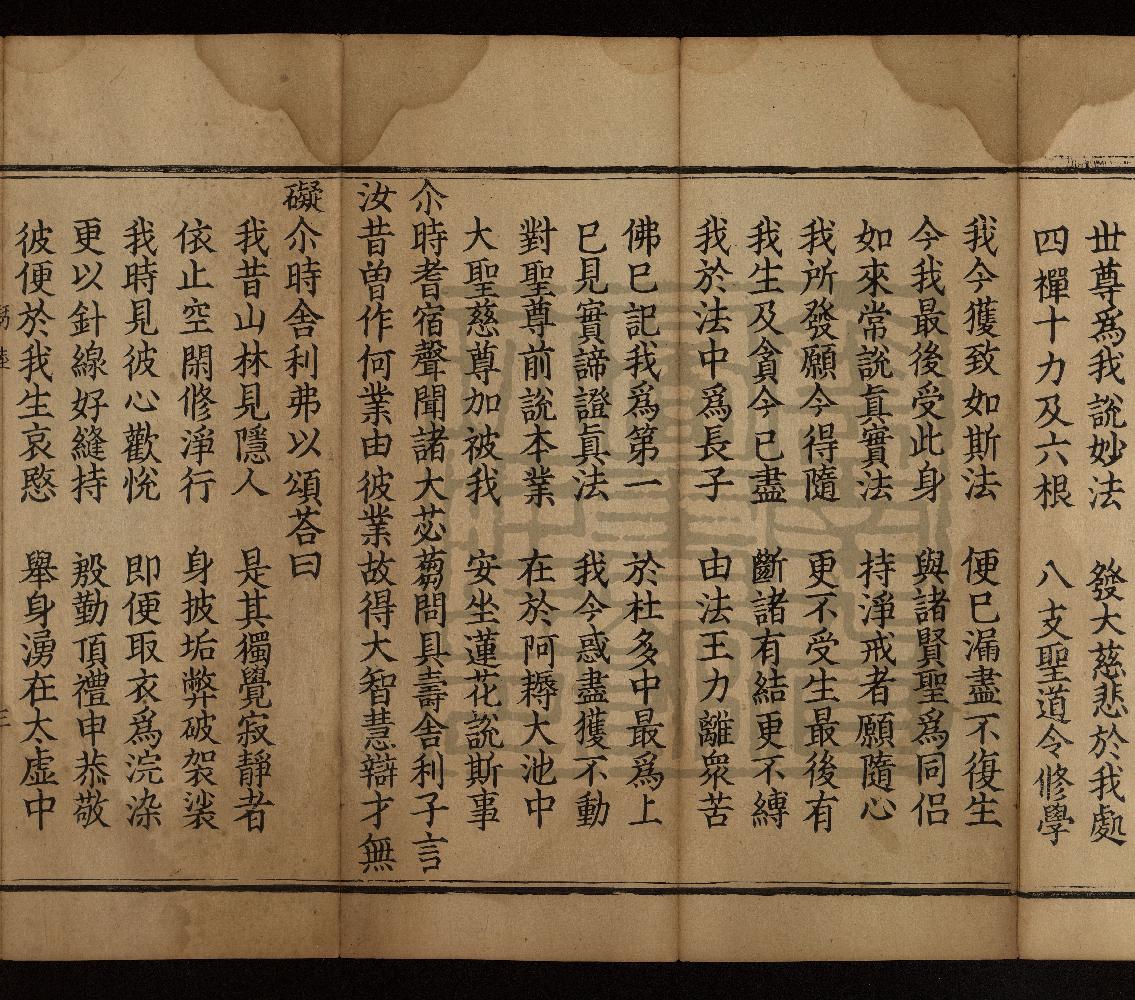 世尊為我說妙法　發大慈悲於我處
四禪十力及六根　八支聖道令修學
我今獲致如斯法　便已漏盡不復生
今我最後受此身　與諸賢聖為同侶
如來常說真實法　持淨戒者願隨心
我所發願今得隨　更不受生最後有
我生及貪今已盡　斷諸有結更不縛
我於法中為長子　由法王力離眾苦
佛已記我為第一　於杜多中最為上
已見實諦證真法　我今惑盡獲不動
對聖尊前說本業　在於阿耨大池中
大聖慈尊加被我　安坐蓮花說斯事
尒時耆宿聲聞諸大苾芻問具壽舍利子言
汝昔曾作何業由彼業故得大智慧辯才無
礙尒時舍利弗以頌荅曰
我昔山林見隱人　是其獨覺寂靜者
依止空閑修淨行　身披垢弊破袈裟
我時見彼心歡悅　即便取衣為浣染
更以針線好縫持　慇勤頂禮申恭敬
彼便於我生哀愍　舉身湧在太虛中